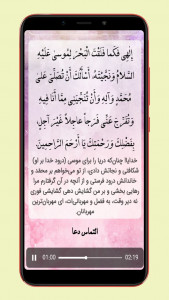 إِلٰهِي فَكَمَا فَلَقْتَ الْبَحْرَ لِمُوسَى عَلَيْهِ
السَّلامُ وَنَجَّيْتَهُ، أَسْأَلُكَ أَنْ تُصَلِّيَ عَلَىٰ
مُحَمَّدٍ وَآلِهِ وَأَنْ تُنَجِّيَنِي مِمَّا أَنَا فِيهِ
وَتُفَرِّجَ عَنِّي فَرَجاً عاجِلاً غَيْرَ آجِلٍ
بِفَضْلِكَ وَرَحْمَتِكَ يَا أَرْحَمَ الرَّاحِمِينَ
خدایا! چنان‌که دریا را برای موسی (درود خدا بر او)
شکافتی و نجاتش دادی، از تو می‌خواهم بر محمد و
خاندانش درود فرستی و از آنچه در آن گرفتارم مرا
رهایی بخشی و بر من گشایش دهی گشایشی فوری
نه دیر وقت، به فضل و مهربانی‌ات، ای مهربان‌ترین
مهربانان.
التماس دعا
01:00
02:19